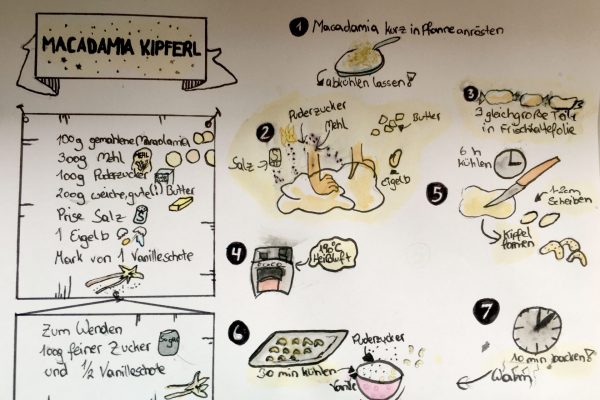 MACADAMIA KIPFERL
100g gemahlene Macadamia
300g Mehl
MEHL
100g Puderzucker
200g weiche, gute(!) Butter
Prise Salz
S
1 Eigelb
Mark von 1 Vanilleschote
Zum Wenden
100g feiner Zucker
und 1/2 Vanilleschote
1 Macadamia kurz in Pfanne anrösten
abkühlen lassen!
2
Puderzucker
Mehl
Butter
Salz
S
Eigelb
3
3 gleichgroße Teile
in Frischhaltefolie
6 h
kühlen
4
190°C
Heißluft
5
1-2cm
Scheiben
Kipferl
formen
6
30 min kühlen
Puderzucker
Vanille
7
10 min backen!
Warm